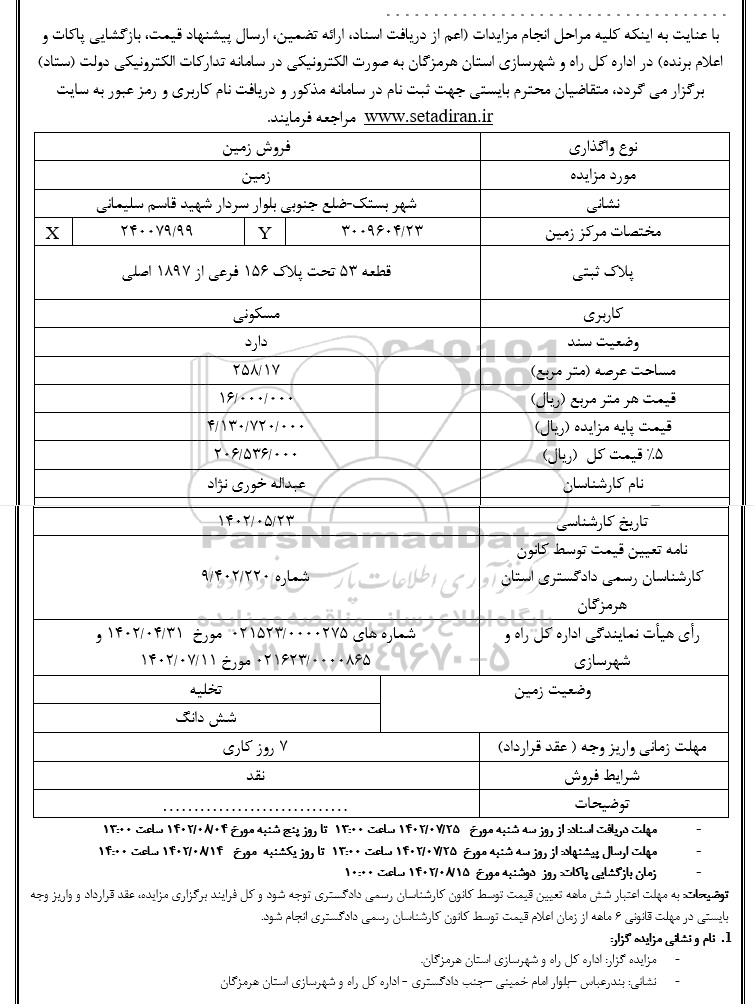 با عنایت به اینکه کلیه مراحل انجام مزایدات (اعم از دریافت اسناد، ارائه تضمین، ارسال پیشنهاد قیمت، بازگشایی پاکات و
اعلام برنده) در اداره کل راه و شهرسازی استان هرمزگان به صورت الکترونیکی در سامانه تدارکات الکترونیکی دولت (ستاد)
برگزار می گردد، متقاضیان محترم بایستی جهت ثبت نام در سامانه مذکور و دریافت نام کاربری و رمز عبور به سایت
www.setadiran.ir مراجعه فرمایند.
نوع واگذاری فروش زمین
مورد مزایده زمین
نشانی شهر بستک-ضلع جنوبی بلوار سردار شهید قاسم سلیمانی
مختصات مرکز زمین ۳۰۰۹۶۰۴/۲۳ Y ۲۴۰۰۷۹/۹۹ X
پلاک ثبتی قطعه ۵۳ تحت پلاک ۱۵۶ فرعی از ۱۸۹۷ اصلی
کاربری مسکونی
وضعیت سند دارد
مساحت عرصه (متر مربع) ۲۵۸/۱۷
قیمت هر متر مربع (ریال) ۱۶/۰۰۰/۰۰۰
قیمت پایه مزایده (ریال) ۴/۱۳۰/۷۲۰/۰۰۰
۵٪ قیمت کل (ریال) ۲۰۶/۵۳۶/۰۰۰
نام کارشناسان عبداله خوری نژاد
تاریخ کارشناسی ۱۴۰۲/۰۵/۲۳
نامه تعیین قیمت توسط کانون
کارشناسان رسمی دادگستری استان
هرمزگان
شماره ۹/۴۰۲/۲۲۰
رأی هیأت نمایندگی اداره کل راه و
شهرسازی
شماره های ۰۲۱۵۲۳/۰۰۰۰۲۷۵ مورخ ۱۴۰۲/۰۴/۳۱ و
۰۲۱۶۲۳/۰۰۰۰۸۶۵ مورخ ۱۴۰۲/۰۷/۱۱
وضعیت زمین تخلیه
شش دانگ
مهلت زمانی واریز وجه ( عقد قرارداد) ۷ روز کاری
شرایط فروش نقد
توضیحات ..............................
- مهلت دریافت اسناد: از روز سه شنبه مورخ ۱۴۰۲/۰۷/۲۵ ساعت ۱۳:۰۰ تا روز پنج شنبه مورخ ۱۴۰۲/۰۸/۰۴ ساعت ۱۳:۰۰
- مهلت ارسال پیشنهاد: از روز سه شنبه مورخ ۱۴۰۲/۰۷/۲۵ ساعت ۱۳:۰۰ تا روز یکشنبه مورخ ۱۴۰۲/۰۸/۱۴ ساعت ۱۴:۰۰
- زمان بازگشایی پاکات: روز دوشنبه مورخ ۱۴۰۲/۰۸/۱۵ ساعت ۱۰:۰۰
توضیحات: به مهلت اعتبار شش ماهه تعیین قیمت توسط کانون کارشناسان رسمی دادگستری توجه شود و کل فرایند برگزاری مزایده، عقد قرارداد و واریز وجه
بایستی در مهلت قانونی ۶ ماهه از زمان اعلام قیمت توسط کانون کارشناسان رسمی دادگستری انجام شود.
1. نام و نشانی مزایده گزار:
- مزایده گزار: اداره کل راه و شهرسازی استان هرمزگان.
- نشانی: بندرعباس –بلوار امام خمینی –جنب دادگستری - اداره کل راه و شهرسازی استان هرمزگان
ParsNamadData
پایگاه اطلاع رسانی مناقصه و مزایده
۰۲۱-۸۸۳۴۹۶۷۰-۵